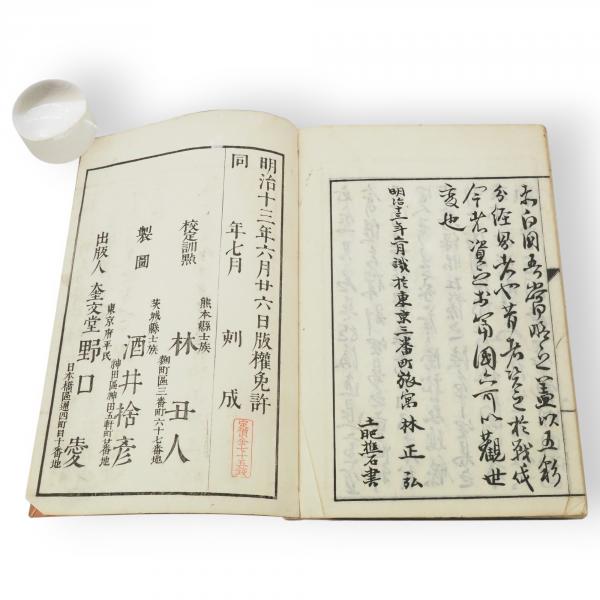 亦白圖吾嘗昭之蓋以五彩
分經界者也昔者資之於戰伐
今者資之於富國亦可以觀世
變也
明治十三年六月識於東京三番町旅寓 林正弘
土肥樵石書
明治十三年六月廿六日版權免許
同 年七月 刻成
定價金七十五錢
校定訓點 熊本縣士族 林 丑人
麴町區三番町六十七番地
製圖 茨城縣士族 酒井捨彥
神田區神田五軒町廿番地
出版人 東京府平民 奎文堂 野口 愛
日本橋區通四町目十番地